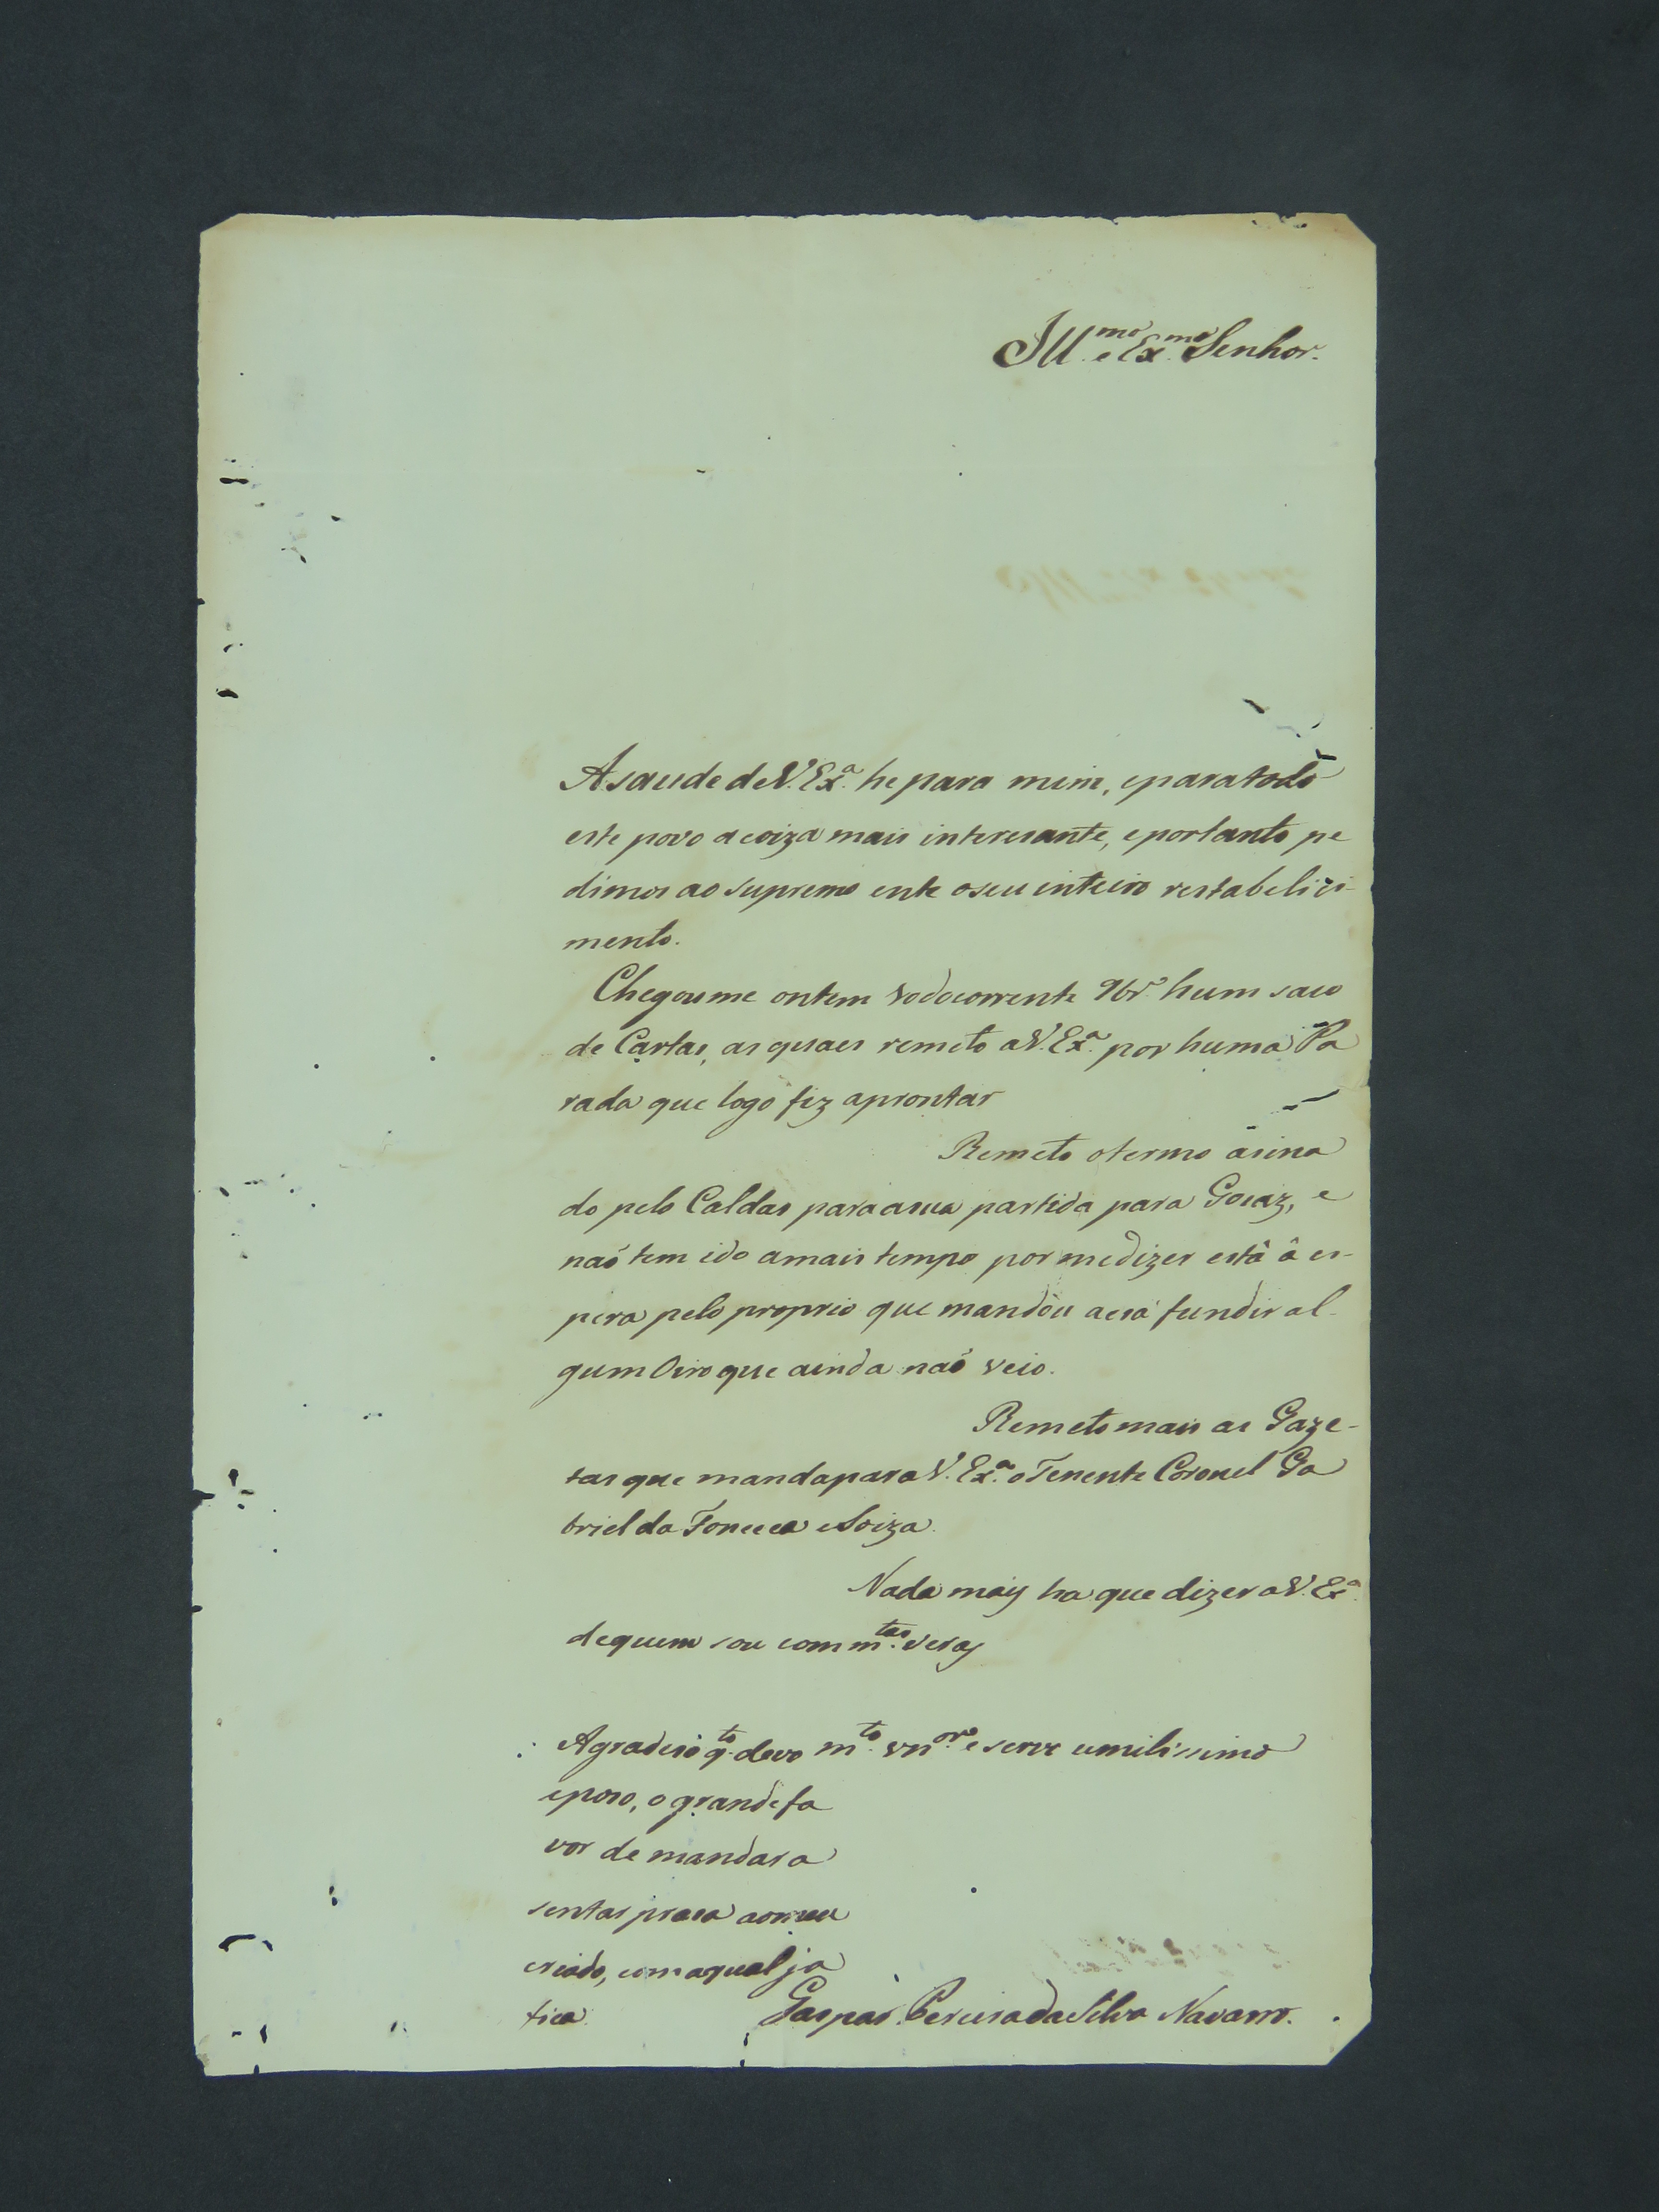 Ill.mo e Ex.mo Senhor.
A saude de V. Ex.a he para mim, e para todo
este povo a coiza mais interesante, e portanto pe
dimos ao supremo ente o seu inteiro restabelici-
mento.
Chegoume ontem do corrente 9br.o hum saco
de Cartas, as quaes remeto a V. Ex.a por huma Pa
rada que logo fiz aprontar
Remeto o termo asina
do pelo Caldas para a sua partida para Goiaz, e
naó tem ido a mais tempo por me dizer está á es-
pera pelo proprio que mandou a essa fundir al-
gum Oiro que ainda naó veio.
Remeto mais as Gaze-
tas que manda para V. Ex.a o Tenente Coronel Ga
briel da Fonceca e Soiza.
Nada mais ha que dizer a V. Ex.a
de quem sou com m.tas veras
Agradeso q.to devo m.to vn.or e servo umilissimo
e poso, o grande fa
vor de mandar a
sentar prasa ao meu
criado, com a qual ja
fica.
Gaspar Pereira da Silva Navarro.